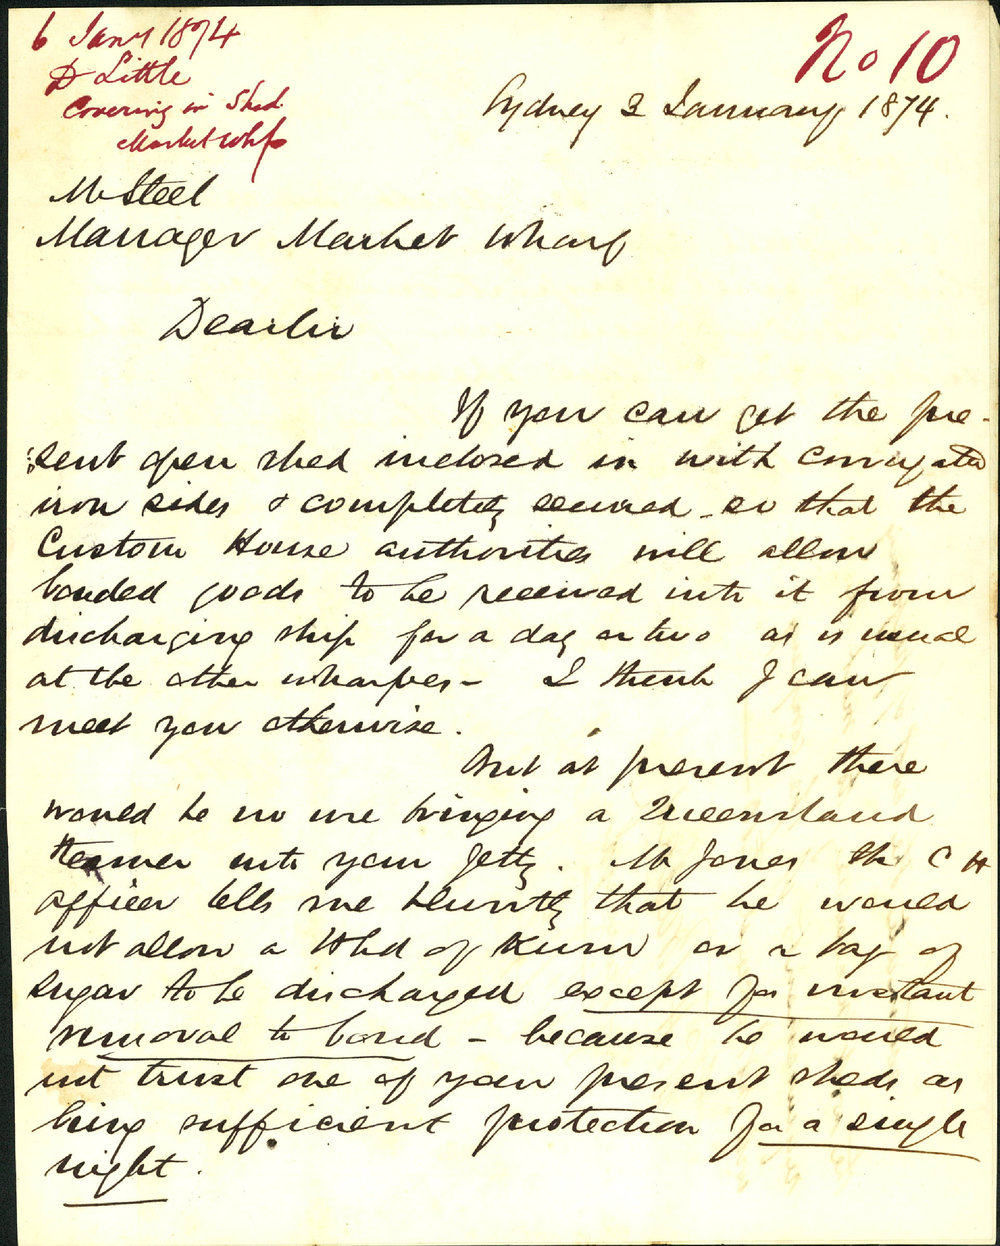 6 Jany 1874
D Little
Covering in Shed
Market Whf
No 10
Sydney 3 January 1874.
Mr Steel
Manager Market Wharf
Dear Sir
If you can get the pre-
sent open shed inclosed in with corrugated
iron sides & completely secured so that the
Custom House authorities will allow
bonded goods to be received into it from
discharging ship for a day or two as is usual
at the other wharfes - I think I can
meet you otherwise.
But at present there
would be no use bringing a Queensland
steamer into your Jetty. Mr Jones the C H
officer tells me bluntly that he would
not allow a Hhd of Rum or a bag of
sugar to be discharged except for instant
removal to bond - because he would
not trust one of your present sheds as
being sufficient protection for a single
night.